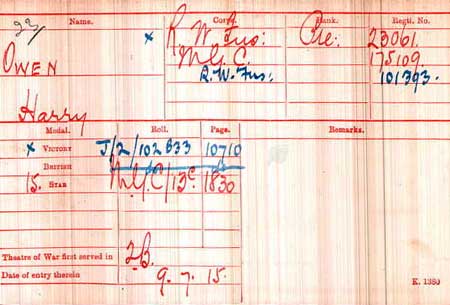 Name. Corps. Rank. Regtl. No.
Owen x R. W. Fus: Pte: 23061.
M.G.C. 175109.
R.W.Fus: 101393.
Harry
Medal. Roll. Page. Remarks.
x Victory J/2/102B33 10710
British
15. Star M.G.C/13C 1830
Theatre of War first served in 2B.
Date of entry therein 9. 7. 15. K. 1380